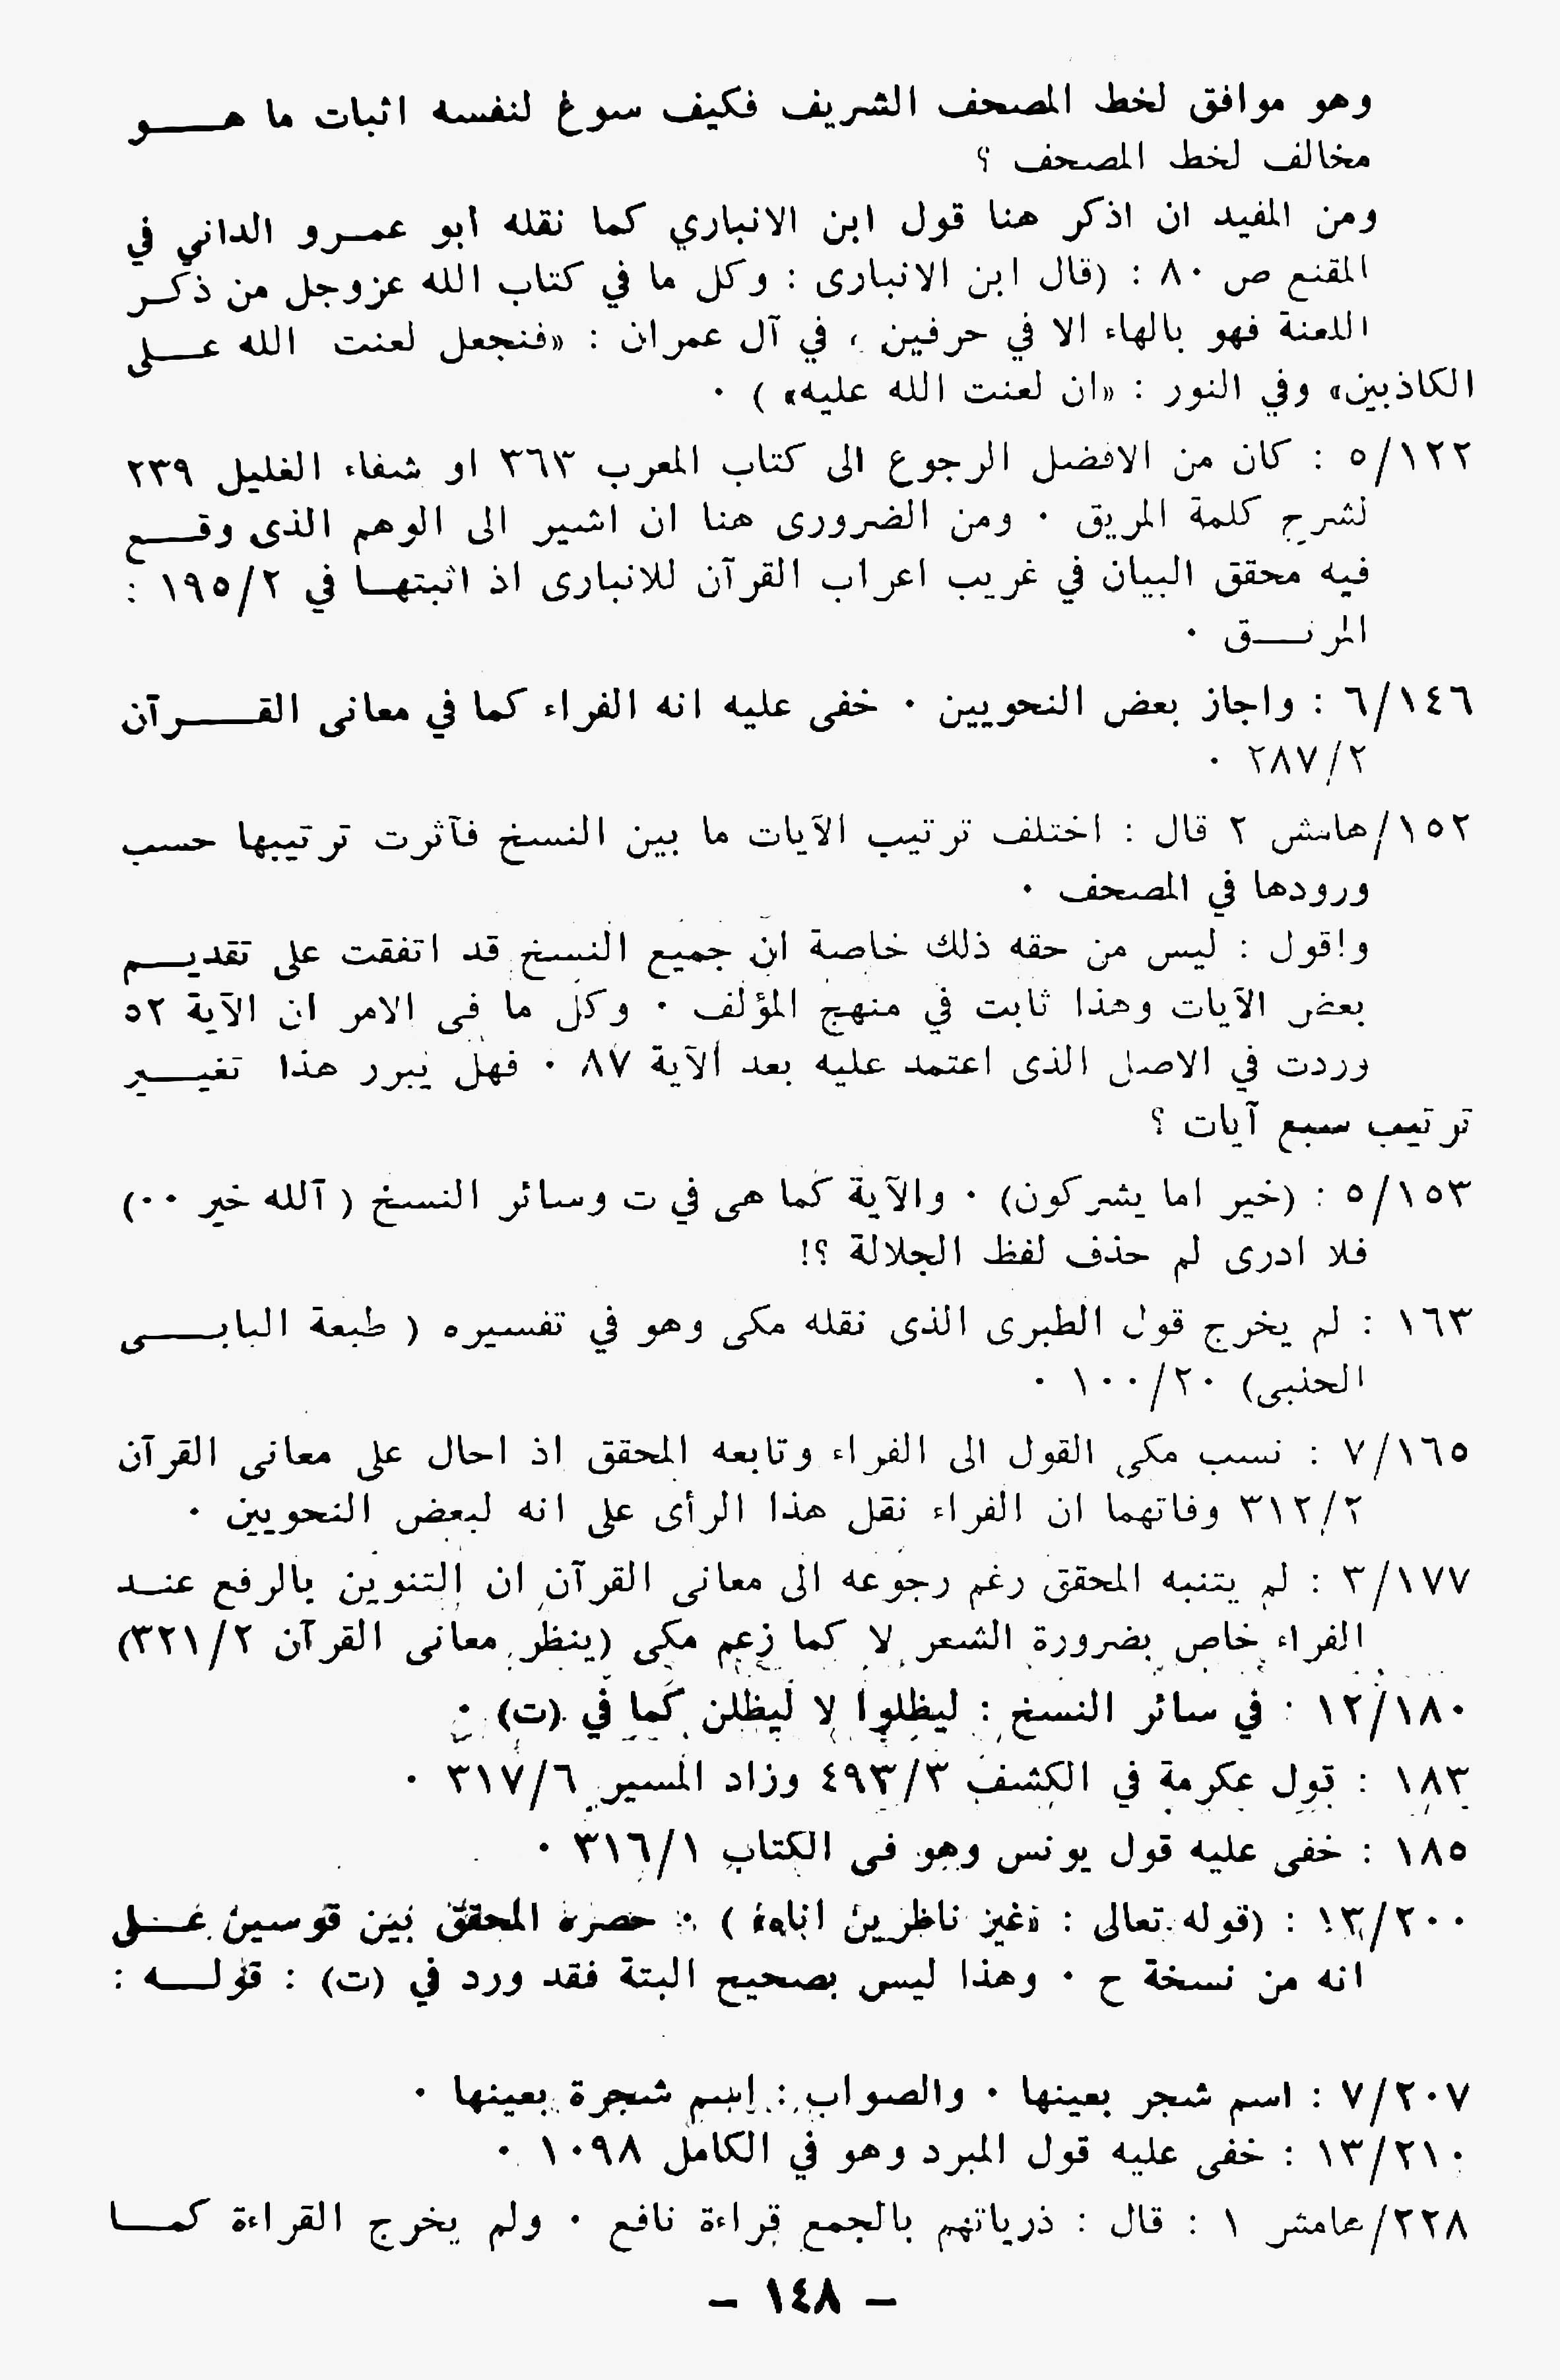 وهو موافق لخط المصحف الشريف فكيف سوغ لنفسه اثبات ما هــو
مخالف لخط المصحف ؟
ومن المفيد ان اذكر هنا قول ابن الانباري كما نقله ابو عمــرو الداني في
المقنع ص ٨٠ : (قال ابن الانبارى : وكل ما في كتاب الله عزوجل من ذكــر
اللعنة فهو بالهاء الا في حرفين ، في آل عمران : «فنجعل لعنت الله عــلى
الكاذبين» وفي النور : «ان لعنت الله عليه» ) ٠
٥/١٢٢ : كان من الافضل الرجوع الى كتاب المعرب ٣٦٣ او شفاء الغليل ٢٣٩
لشرح كلمة المريق ٠ ومن الضرورى هنا ان اشير الى الوهم الذى وقــع
فيه محقق البيان في غريب اعراب القرآن للانبارى اذ اثبتهــا في ١٩٥/٢ :
المرنــق ٠
٦/١٤٦ : واجاز بعض النحويين ٠ خفى عليه انه الفراء كما في معانى القــرآن
٢٨٧/٢ ٠
١٥٢/هامش ٢ قال : اختلف ترتيب الآيات ما بين النسخ فآثرت ترتيبها حسب
ورودها في المصحف ٠
واقول : ليس من حقه ذلك خاصة ان جميع النسخ قد اتفقت على تقديــم
بعض الآيات وهذا ثابت في منهج المؤلف ٠ وكل ما فى الامر ان الآية ٥٢
وردت في الاصل الذى اعتمد عليه بعد الآية ٨٧ ٠ فهل يبرر هذا تغيــير
ترتيب سبع آيات ؟
٥/١٥٣ : (خير اما يشركون) ٠ والآية كما هى في ت وسائر النسخ ( آلله خير ٠٠)
فلا ادرى لم حذف لفظ الجلالة ؟!
١٦٣ : لم يخرج قول الطبرى الذى نقله مكى وهو في تفسيره ( طبعة البابــى
الحنبى) ١٠٠/٢٠ ٠
٧/١٦٥ : نسب مكى القول الى الفراء وتابعه المحقق اذ احال على معانى القرآن
٣١٢/٢ وفاتهما ان الفراء نقل هذا الرأى على انه لبعض النحويين ٠
٣/١٧٧ : لم يتنبه المحقق رغم رجوعه الى معانى القرآن ان التنوين بالرفع عنــد
الفراء خاص بضرورة الشعر لا كما زعم مكى (ينظر معانى القرآن ٣٢١/٢)
١٢/١٨٠ : في سائر النسخ : ليظلوا لا ليظلن كما في (ت) ٠
١٨٣ : قول عكرمة في الكشف ٤٩٣/٣ وزاد المسير ٣١٧/٦ ٠
١٨٥ : خفى عليه قول يونس وهو فى الكتاب ٣١٦/١ ٠
١٣/٢٠٠ : (قوله تعالى : «غير ناظرين اناه» ) ٠ حصره المحقق بين قوسين عــلى
انه من نسخة ح ٠ وهذا ليس بصحيح البتة فقد ورد في (ت) : قولــه :
٧/٢٠٧ : اسم شجر بعينها ٠ والصواب : اسم شجرة بعينها ٠
١٣/٢١٠ : خفى عليه قول المبرد وهو في الكامل ١٠٩٨ ٠
٢٢٨/هامش ١ : قال : ذرياتهم بالجمع قراءة نافع ٠ ولم يخرج القراءة كمــا
– ١٤٨ –